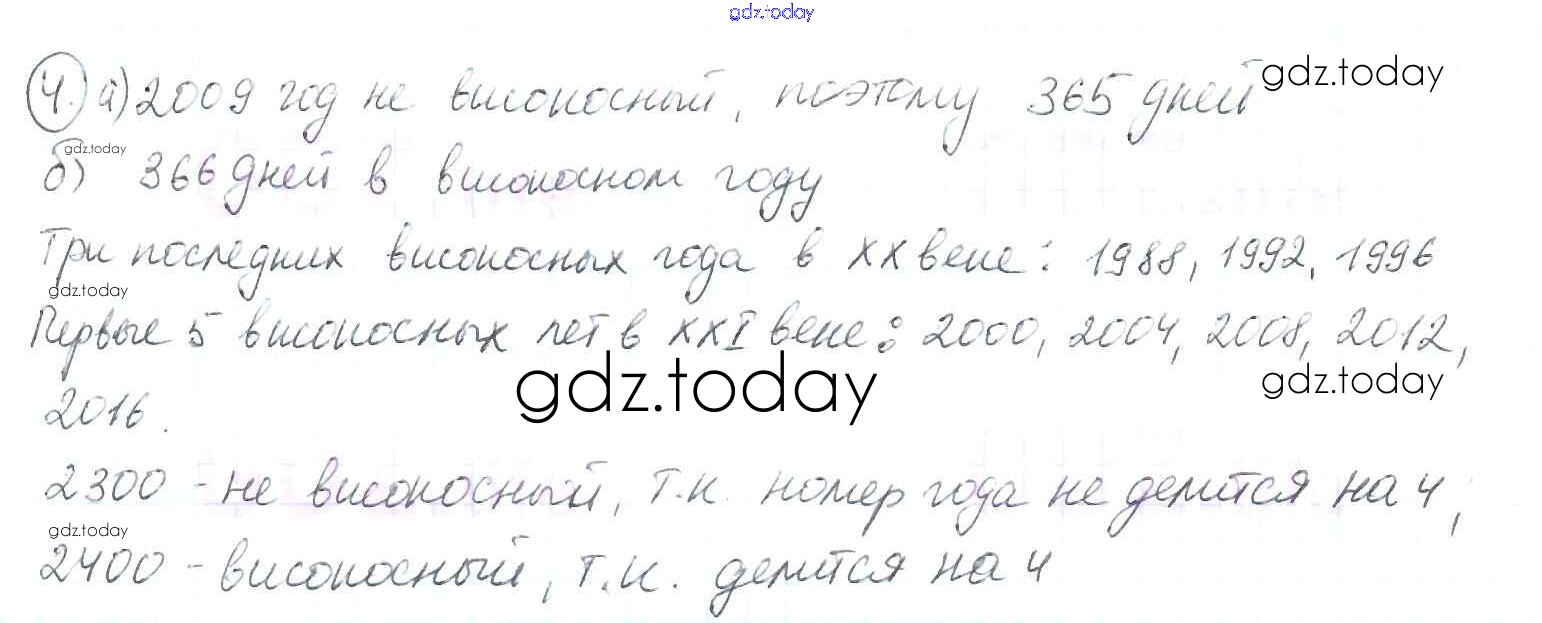 gdz.today
4. а) 2009 год не високосный, поэтому 365 дней gdz.today
gdz.today
б) 366 дней в високосном году
Три последних високосных года в XX веке: 1988, 1992, 1996
gdz.today
Первые 5 високосных лет в XXI веке: 2000, 2004, 2008, 2012,
gdz.today gdz.today
2016.
2300 - не високосный, т.к. номер года не делится на 4,
gdz.today
2400 - високосный, т.к. делится на 4